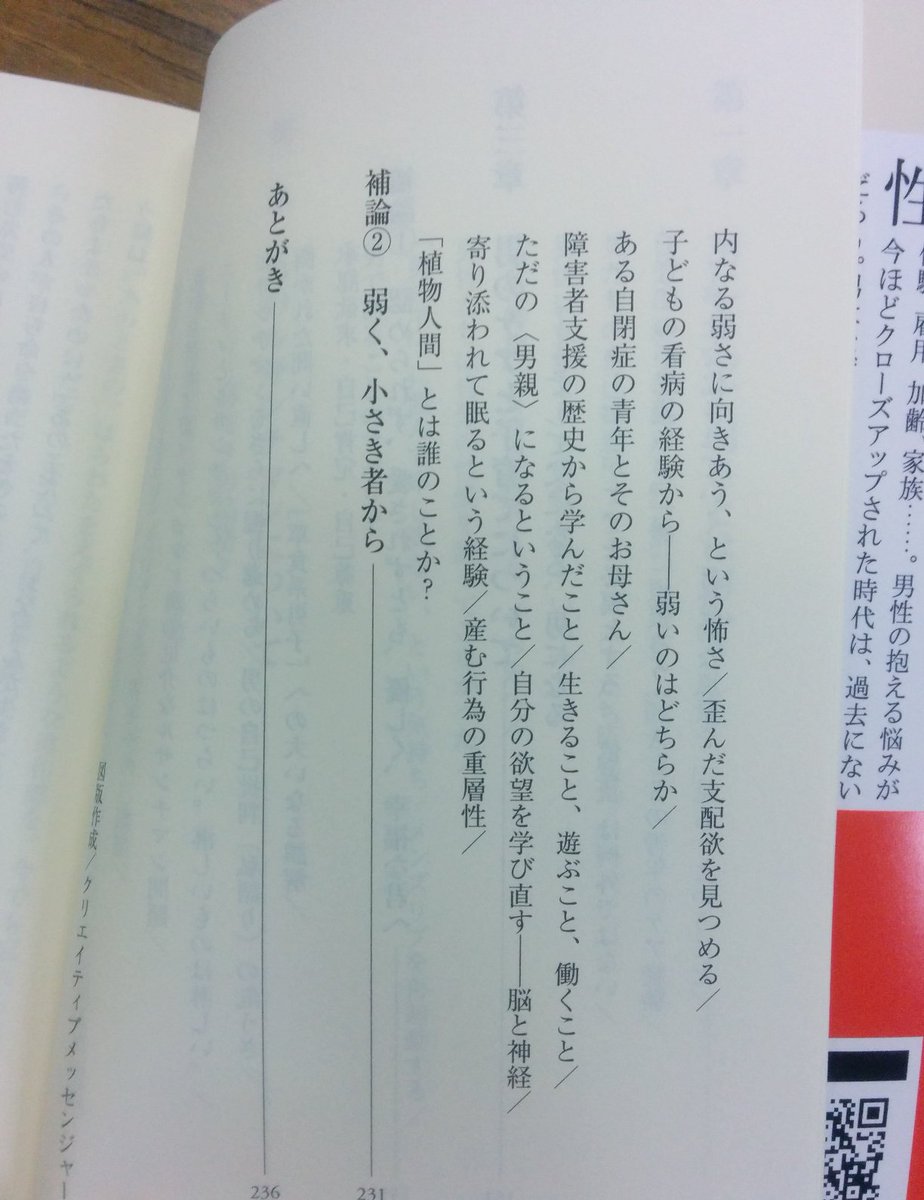 内なる弱さに向きあう、という怖さ／歪んだ支配欲を見つめる／
子どもの看病の経験から――弱いのはどちらか／
ある自閉症の青年とそのお母さん／
障害者支援の歴史から学んだこと／生きること、遊ぶこと、働くこと／
ただの〈男親〉になるということ／自分の欲望を学び直す――脳と神経／
寄り添われて眠るという経験／産む行為の重層性／
「植物人間」とは誰のことか？
補論② 弱く、小さき者から 231
あとがき 236
図版作成／クリエイティブメッセンジャー
性
加齢、家族……。男性の抱える悩みが
今ほどクローズアップされた時代は、過去にない